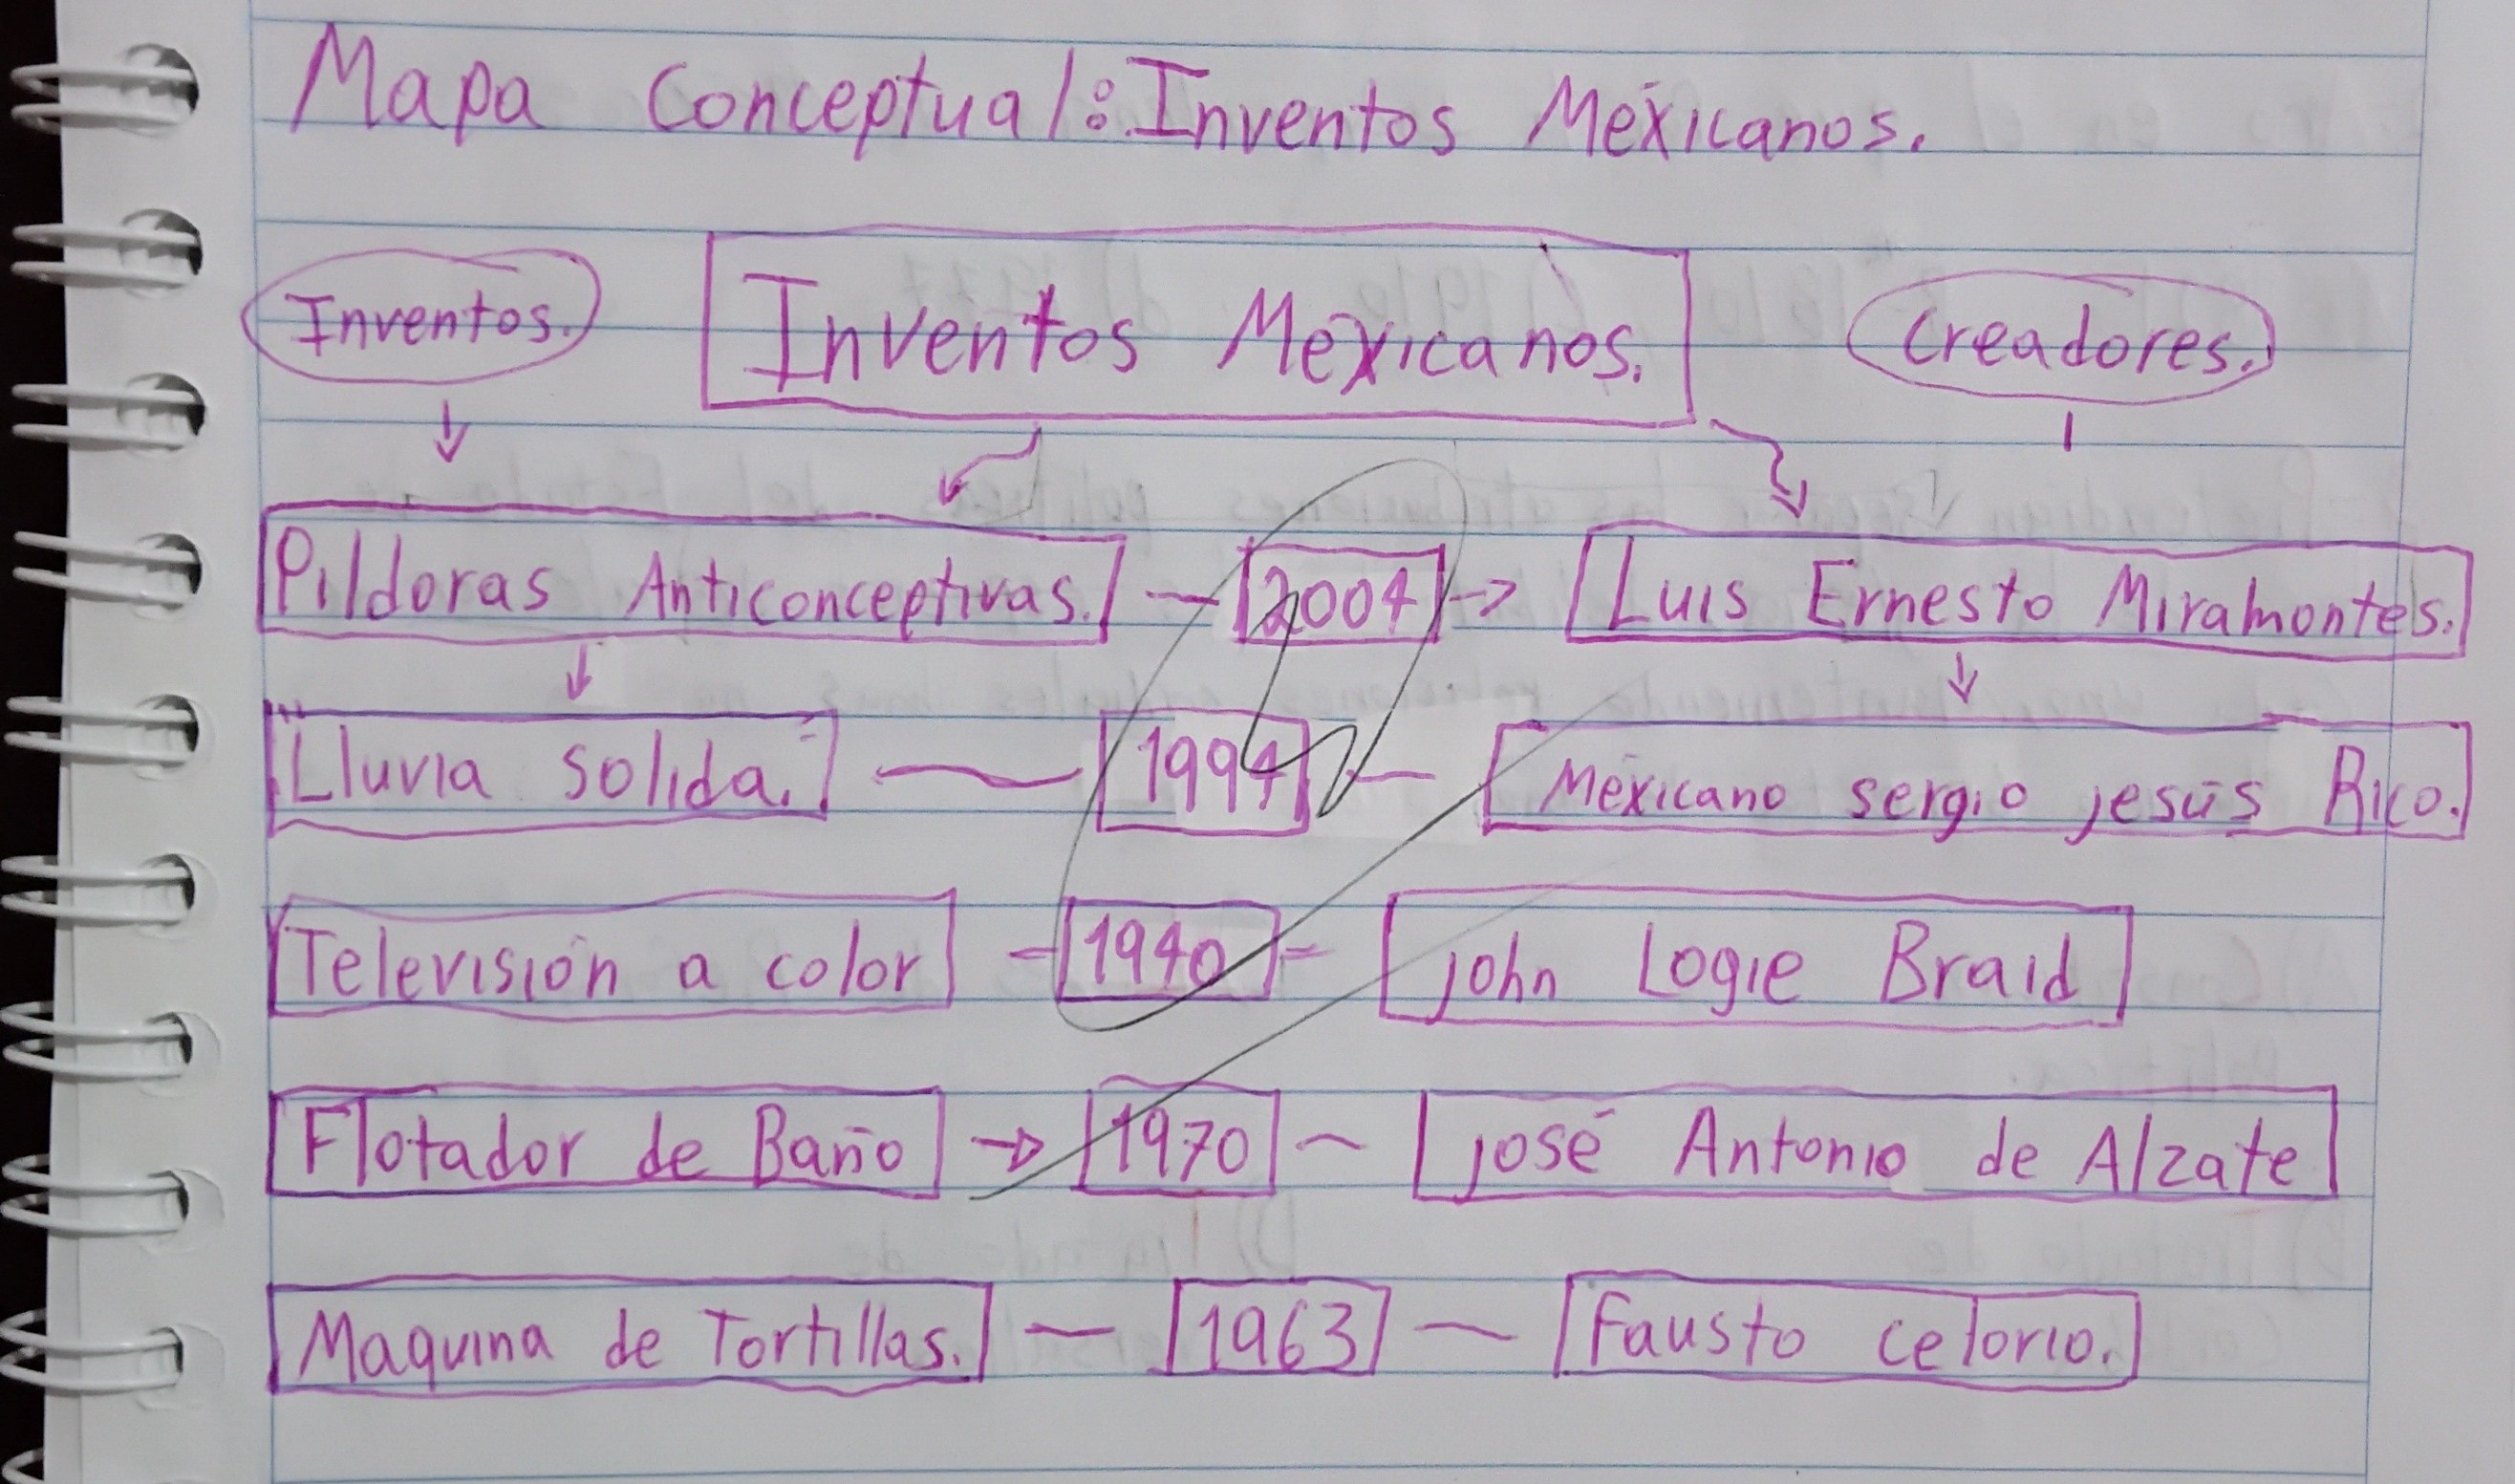 Mapa Conceptual: Inventos Mexicanos.
Inventos. Inventos Mexicanos. Creadores.
Pildoras Anticonceptivas. 2004 Luis Ernesto Miramontes.
Lluvia solida. 1994 Mexicano sergio jesús Rico.
Televisión a color 1940 john Logie Braid
Flotador de Baño 1970 josé Antonio de Alzate
Maquina de Tortillas. 1963 Fausto celorio.